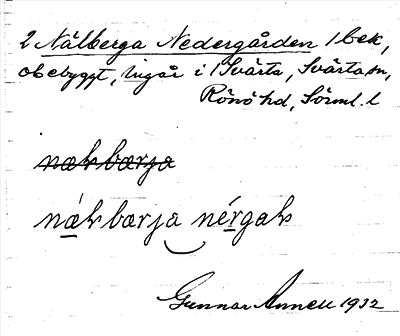 2 Nälberga Nedergården 1 bek,
obebyggt, ingår i 1 Svärta, Svärta sn,
Rönö hd, Sörml. l
næłbærja
næłbarja nérgał
Gunnar Annell 1932